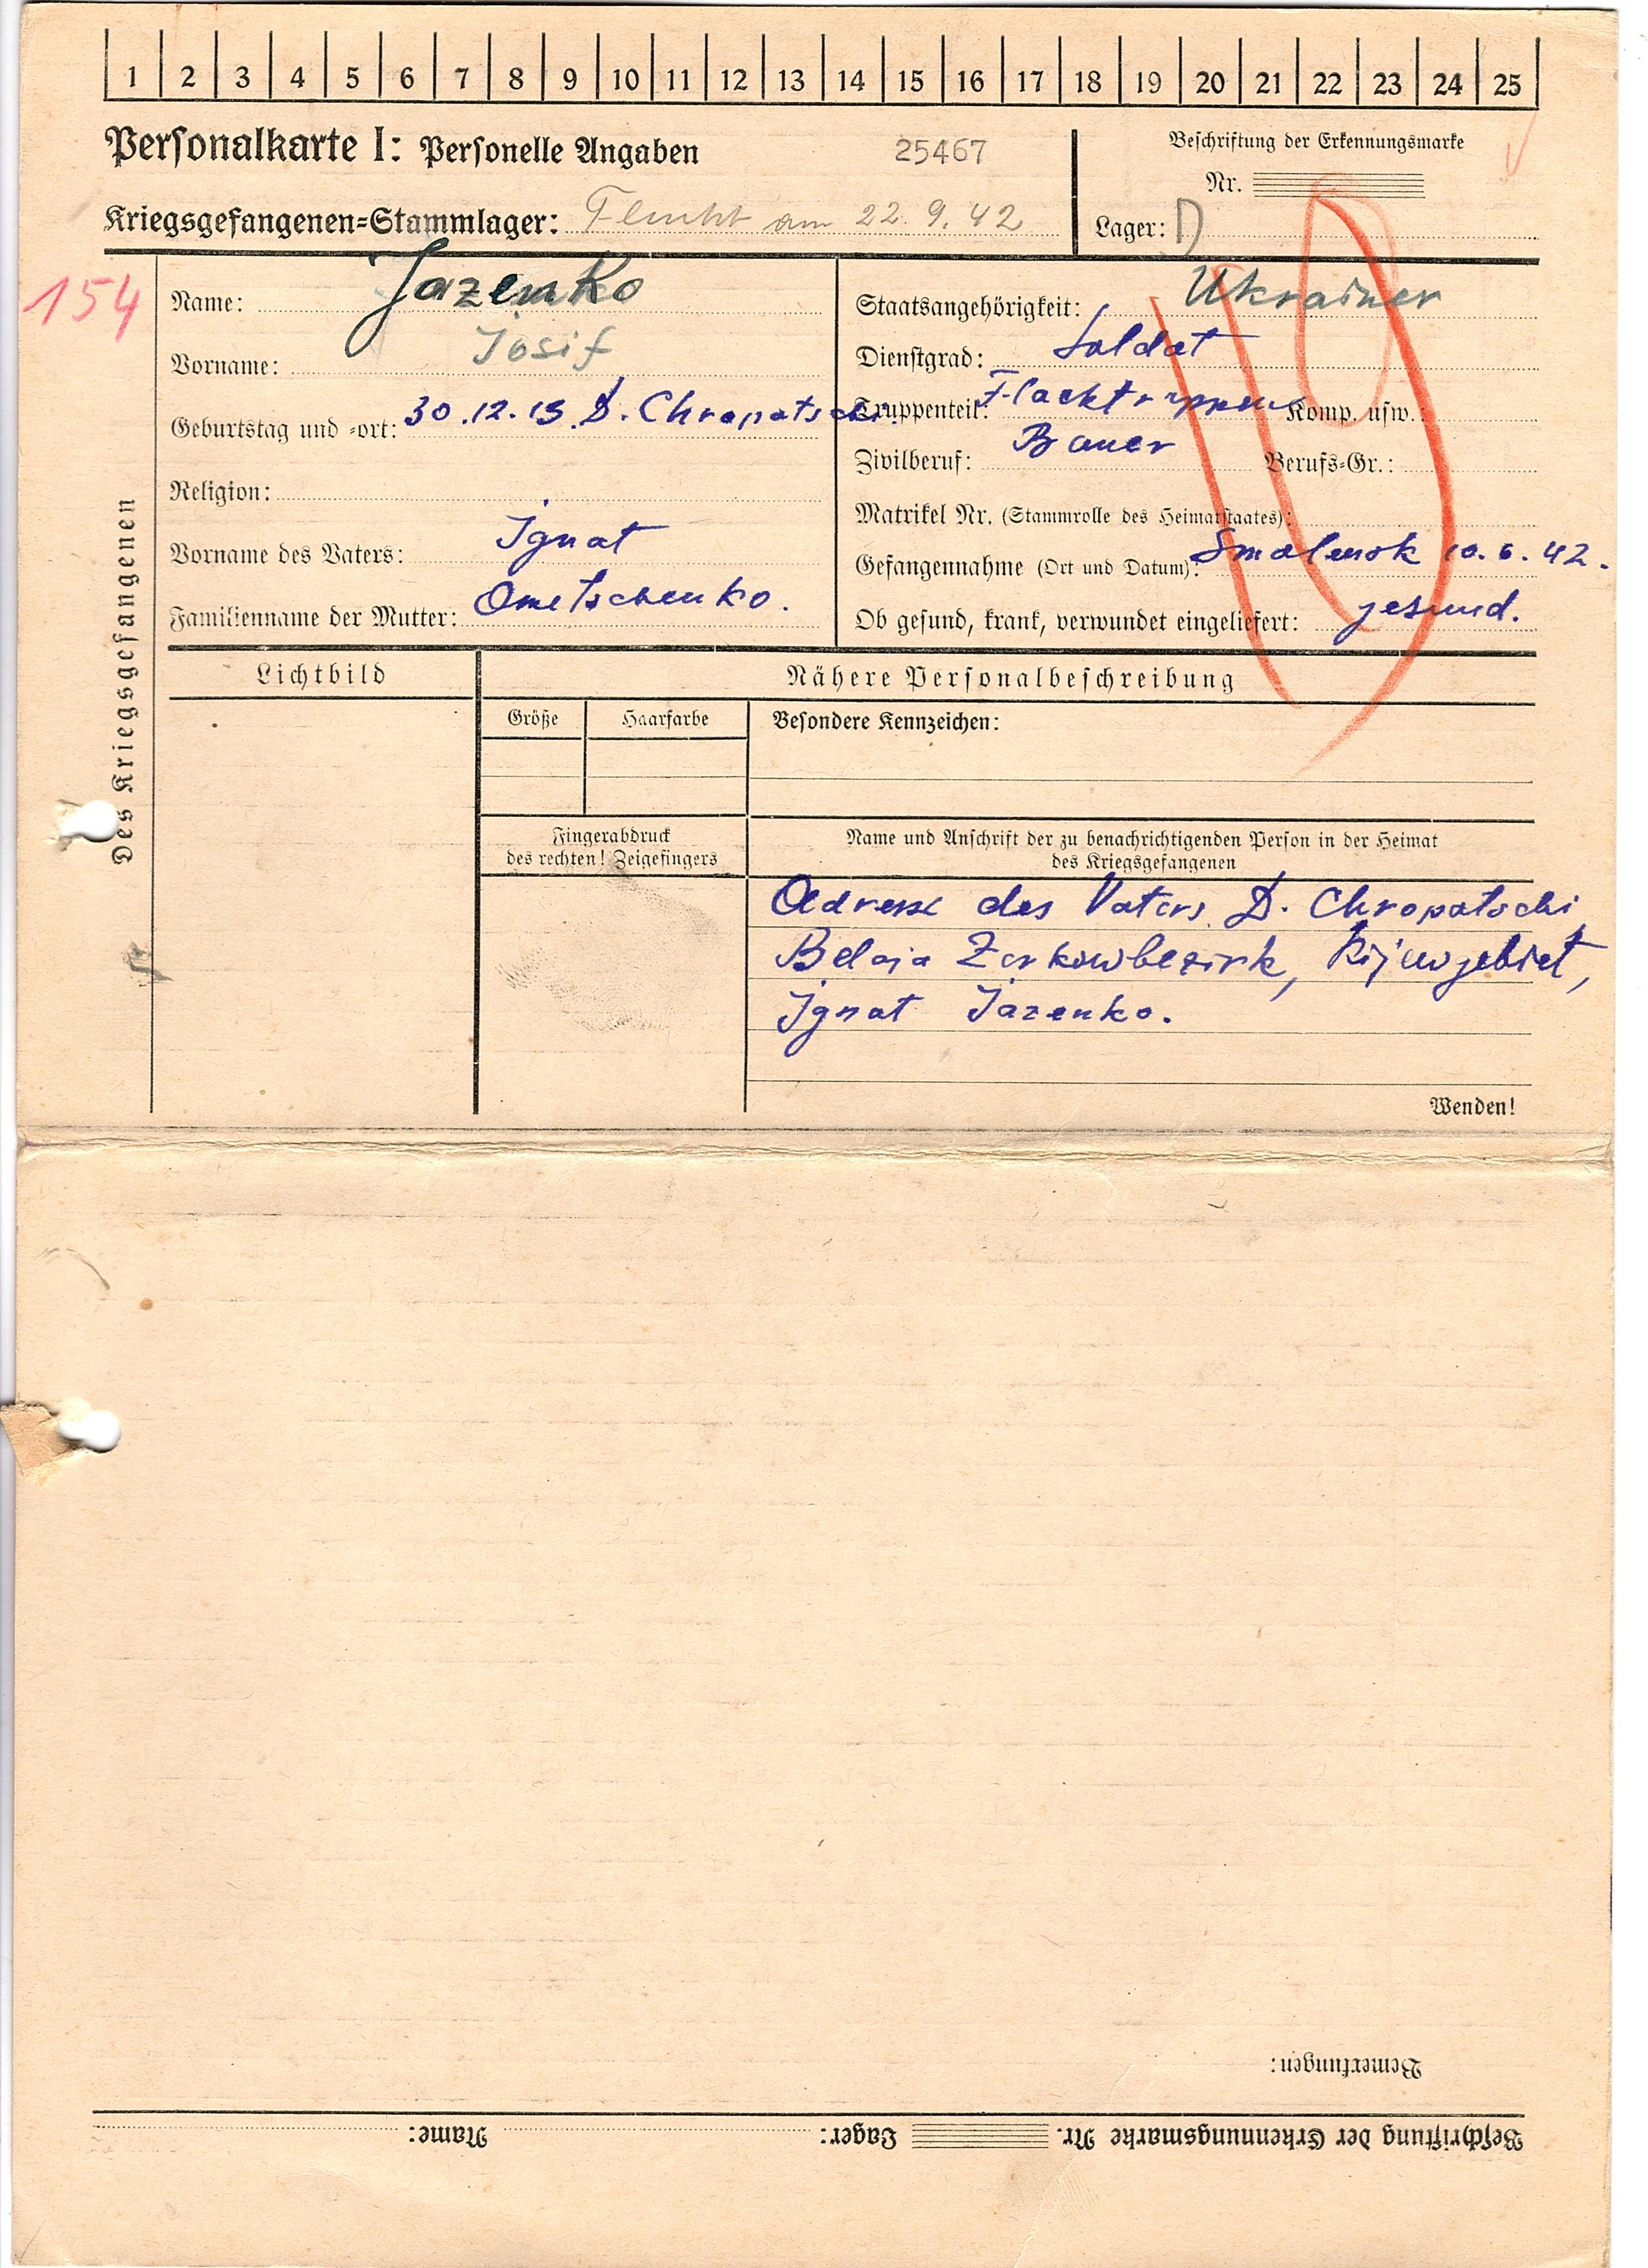 1 2 3 4 5 6 7 8 9 10 11 12 13 14 15 16 17 18 19 20 21 22 23 24 25
Personalkarte I: Personelle Angaben
25467
Beschriftung der Erkennungsmarke
Nr.
Kriegsgefangenen=Stammlager: Flucht am 22.9.42
Lager:
154
Des Kriegsgefangenen
Name: Jazenko
Vorname: Josif
Geburtstag und =ort: 30.12.13 D. Chropatschi
Religion:
Vorname des Vaters: Ignat
Familienname der Mutter: Ometschenko.
Staatsangehörigkeit: Ukrainer
Dienstgrad: Soldat
Truppenteil: Flacktruppen Komp. usw.:
Zivilberuf: Bauer Berufs=Gr.:
Matrikel Nr. (Stammrolle des Heimatstaates):
Gefangennahme (Ort und Datum): Smolensk 10.6.42.
Ob gesund, krank, verwundet eingeliefert: gesund.
Lichtbild
Nähere Personalbeschreibung
Größe
Haarfarbe
Besondere Kennzeichen:
Fingerabdruck
des rechten! Zeigefingers
Name und Anschrift der zu benachrichtigenden Person in der Heimat
des Kriegsgefangenen
Adresse des Vaters D. Chropatschi
Belaja Zerkowbezirk, Kijewgebiet,
Ignat Jazenko.
Wenden!
Bemerkungen:
Beschriftung der Erkennungsmarke Nr. Lager: Name: